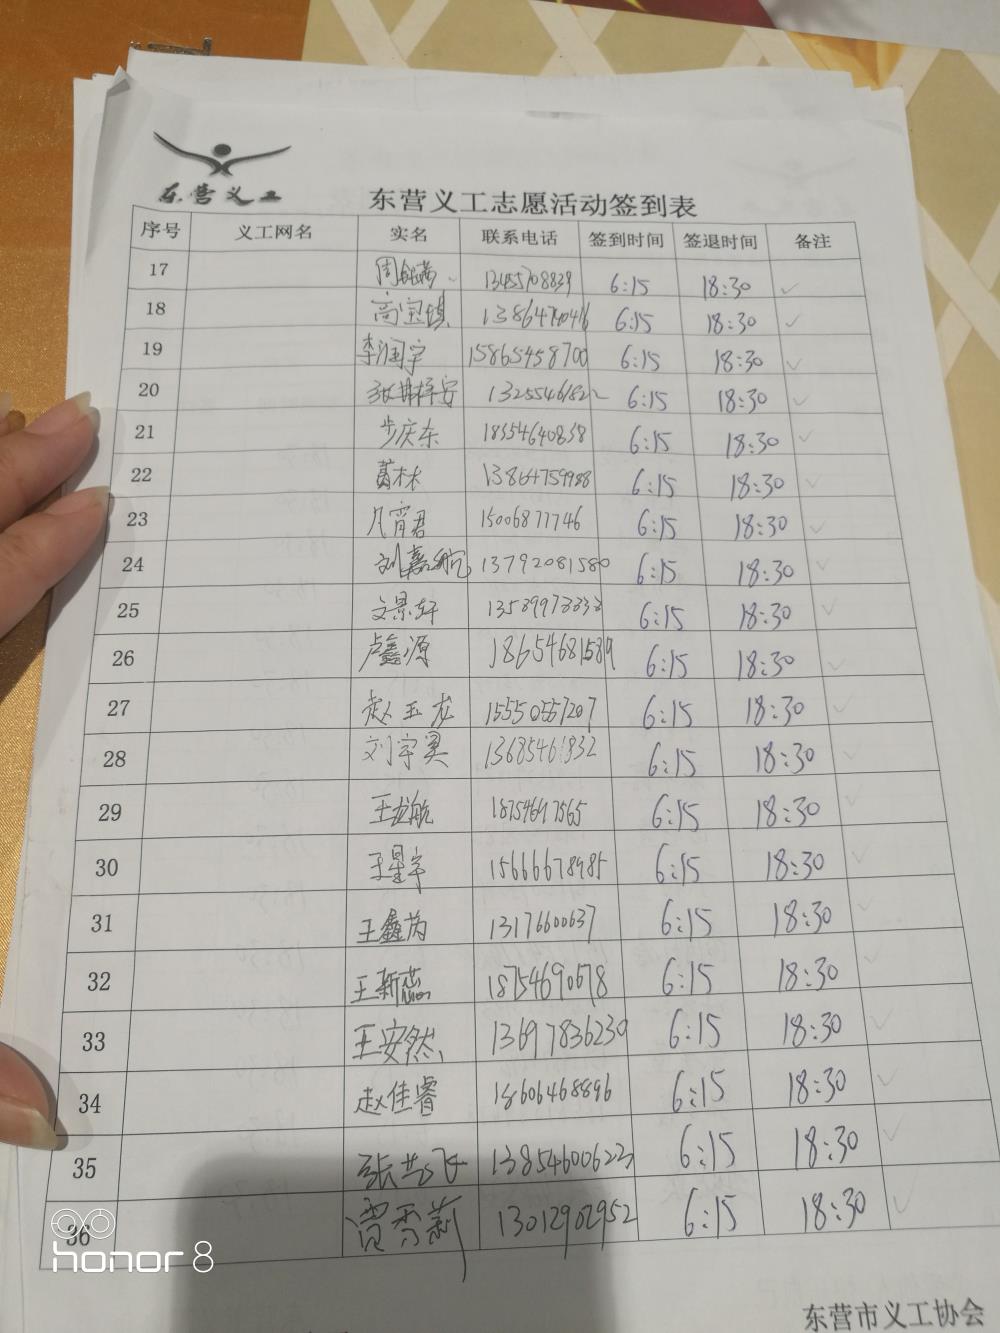 东营义工
东营义工志愿活动签到表
序号 义工网名 实名 联系电话 签到时间 签退时间 备注
17 13455708839 6:15 18:30 ✓
18 高宝镇 13864740416 6:15 18:30 ✓
19 李润宇 15865458700 6:15 18:30 ✓
20 6:15 18:30 ✓
21 步庆东 18354640838 6:15 18:30 ✓
22 13864759988 6:15 18:30 ✓
23 凡霄君 15006877746 6:15 18:30 ✓
24 刘嘉航 13792081580 6:15 18:30 ✓
25 文景轩 6:15 18:30 ✓
26 卢鑫源 18654681589 6:15 18:30 ✓
27 赵玉龙 15550557207 6:15 18:30 ✓
28 刘宇昊 13685461832 6:15 18:30 ✓
29 王龙航 18754697565 6:15 18:30 ✓
30 王星宇 15666678985 6:15 18:30 ✓
31 王鑫芮 13176600637 6:15 18:30 ✓
32 王新蕊 18754690678 6:15 18:30 ✓
33 王安然 13697836230 6:15 18:30 ✓
34 赵佳睿 18606468896 6:15 18:30 ✓
35 13854600623 6:15 18:30 ✓
36 贾秀莉 13012902952 6:15 18:30 ✓
honor 8
东营市义工协会